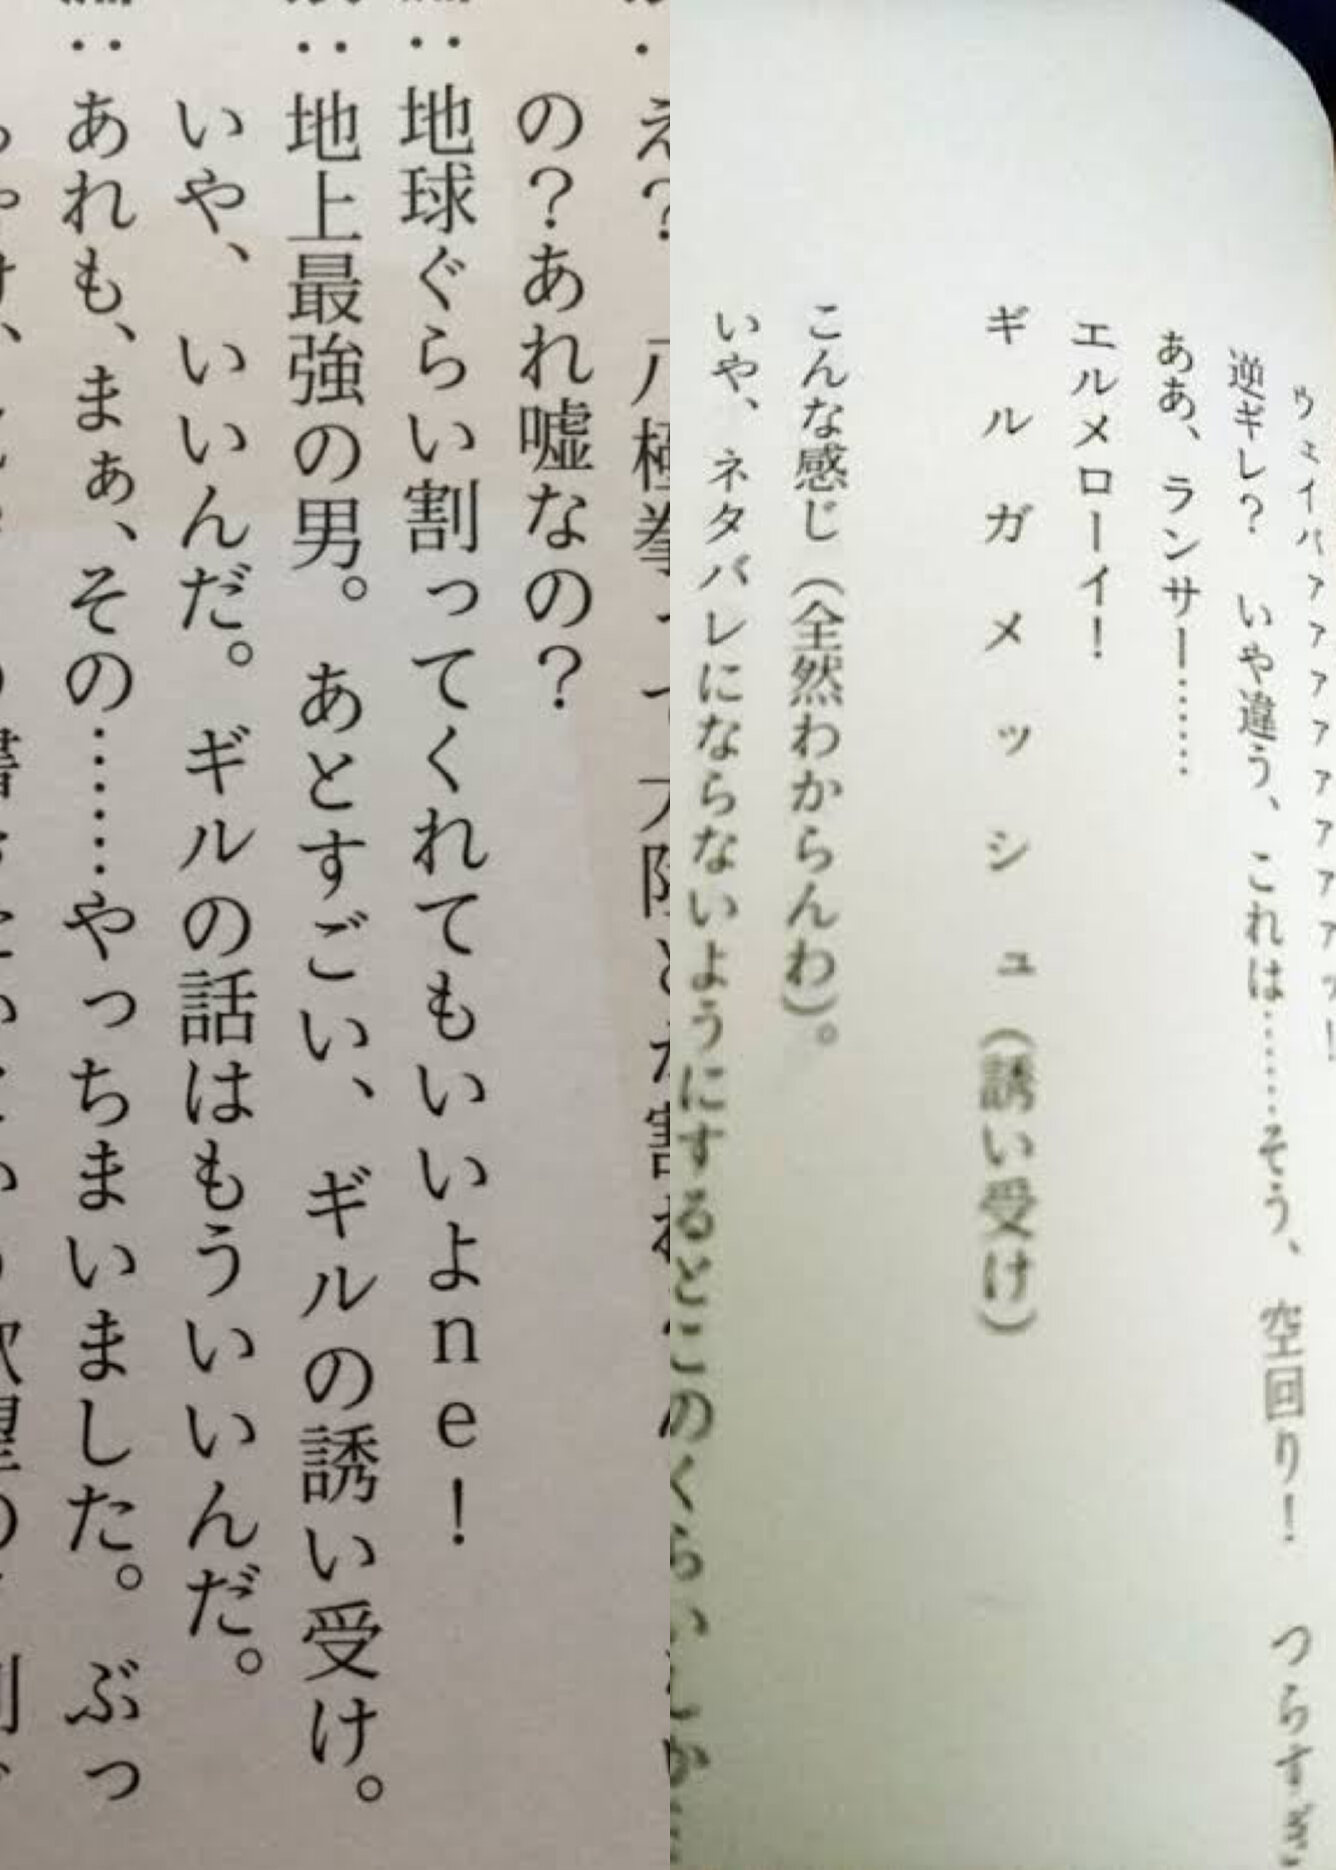 ウェイバァァァァァァァァッ！
逆ギレ？　いや違う、これは……そう、空回り！　つらすぎ
ああ、ランサー……
エルメローイ！
ギルガメッシュ（誘い受け）
こんな感じ（全然わからんわ）。
いや、ネタバレにならないようにするとこのくらいしか
え？　八極拳って大陸とか割れ
の？あれ嘘なの？
：地球ぐらい割ってくれてもいいよne！
：地上最強の男。あとすごい、ギルの誘い受け。
いや、いいんだ。ギルの話はもういいんだ。
：あれも、まぁ、その……やっちまいました。ぶっ